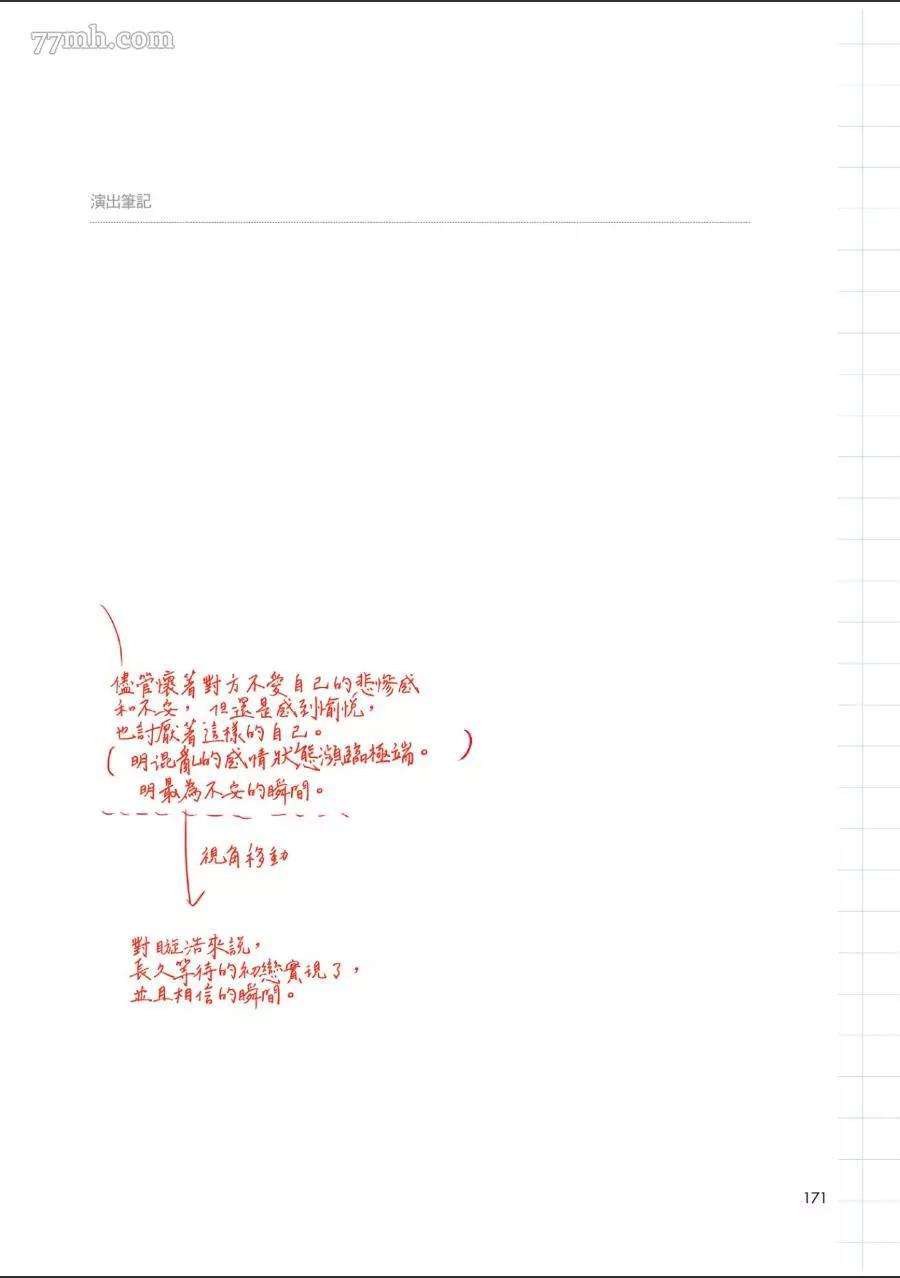 77mh.com
演出筆記
儘管懷著對方不愛自己的悲慘感
和不安，但還是感到愉悅，
也討厭著這樣的自己。
(明混亂的感情狀態瀕臨極端。)
明最為不安的瞬間。
視角移動
對昡浩來說，
長久等待的初戀實現了，
並且相信的瞬間。
171